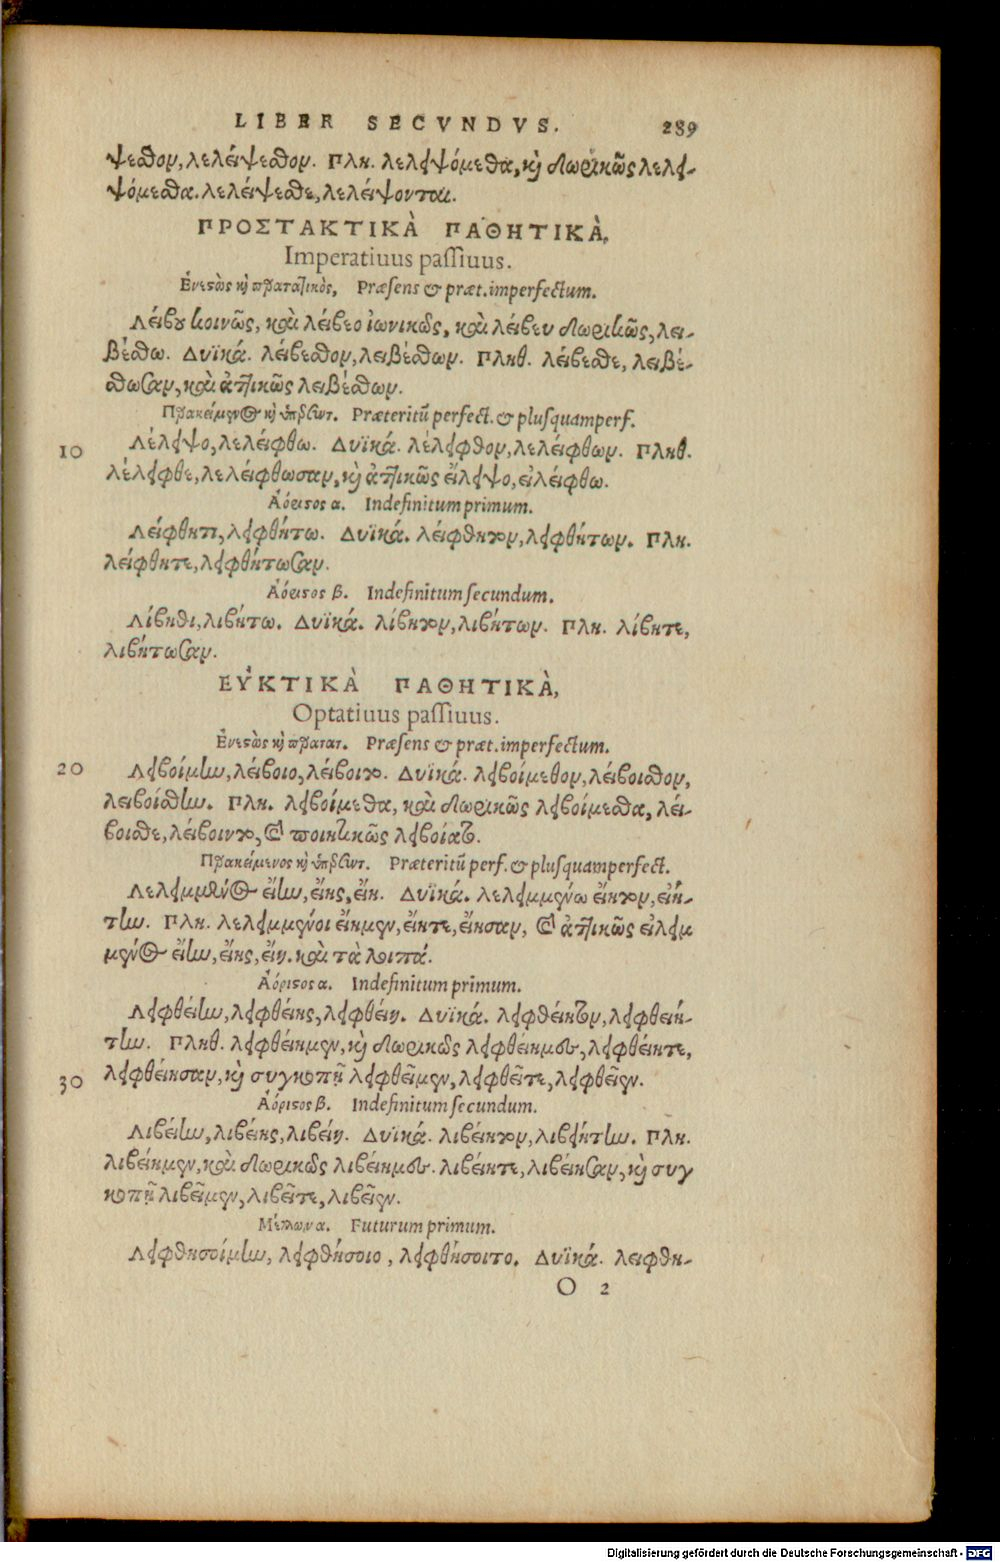 LIBER SECVNDVS. 289
ψεσθον, λελείψεσθον. Πλη. λελειψόμεθα, κỳ δωρικῶς λελει-
ψόμεσθα. λελείψεσθε, λελείψονται.
ΠΡΟΣΤΑΚΤΙΚᾺ ΠΑΘΗΤΙΚᾺ,
Imperatiuus paſſiuus.
Ἐνεστὼς κỳ παρατατικὸς, Præſens & præt. imperfectum.
Λείβου κοινῶς, καὶ λείβεο ἰωνικῶς, καὶ λείβευ δωρικῶς, λει-
βέσθω. Δυϊκά. λείβεσθον, λειβέσθων. Πληθ. λείβεσθε, λειβέ-
σθωσαν, καὶ ἀττικῶς λειβέσθων.
Παρακείμενος κỳ ὑπερσυντ. Præteritũ perfect. & pluſquamperf.
10 Λέλειψο, λελείφθω. Δυϊκά. λέλειφθον, λελείφθων. Πληθ.
λέλειφθε, λελείφθωσαν, κỳ ἀττικῶς εἴλειψο, εἰλείφθω.
Ἀόριστος α. Indefinitum primum.
Λείφθητι, λειφθήτω. Δυϊκά. λείφθητον, λειφθήτων. Πλη.
λείφθητε, λειφθήτωσαν.
Ἀόριστος β. Indefinitum ſecundum.
Λίβηθι, λιβήτω. Δυϊκά. λίβητον, λιβήτων. Πλη. λίβητε,
λιβήτωσαν.
ΕΥ̓ΚΤΙΚᾺ ΠΑΘΗΤΙΚᾺ,
Optatiuus paſſiuus.
Ἐνεστὼς κỳ παρατατ. Præſens & præt. imperfectum.
20 Λειβοίμην, λείβοιο, λείβοιτο. Δυϊκά. λειβοίμεθον, λείβοισθον,
λειβοίσθην. Πλη. λειβοίμεθα, καὶ δωρικῶς λειβοίμεσθα, λεί-
βοισθε, λείβοιντο, καὶ ποιητικῶς λειβοίατο.
Παρακείμενος κỳ ὑπερσυντ. Præteritũ perf. & pluſquamperfect.
Λελειμμένος εἴην, εἴης, εἴη. Δυϊκά. λελειμμένω εἴητον, εἰή-
την. Πλη. λελειμμένοι εἴημεν, εἴητε, εἴησαν, καὶ ἀττικῶς εἰλειμ
μένος εἴην, εἴης, εἴη. καὶ τὰ λοιπά.
Ἀόριστος α. Indefinitum primum.
Λειφθείην, λειφθείης, λειφθείη. Δυϊκά. λειφθείητον, λειφθειή-
την. Πληθ. λειφθείημεν, κỳ δωρικῶς λειφθείημες, λειφθείητε,
30 λειφθείησαν, κỳ συγκοπῇ λειφθεῖμεν, λειφθεῖτε, λειφθεῖεν.
Ἀόριστος β. Indefinitum ſecundum.
Λιβείην, λιβείης, λιβείη. Δυϊκά. λιβείητον, λιβειήτην. Πλη.
λιβείημεν, καὶ δωρικῶς λιβείημες. λιβείητε, λιβείησαν, κỳ συγ
κοπῇ λιβεῖμεν, λιβεῖτε, λιβεῖεν.
Μέλλων α. Futurum primum.
Λειφθησοίμην, λειφθήσοιο, λειφθήσοιτο. Δυϊκά. λειφθη-
O 2
Digitalisierung gefördert durch die Deutsche Forschungsgemeinschaft - DFG